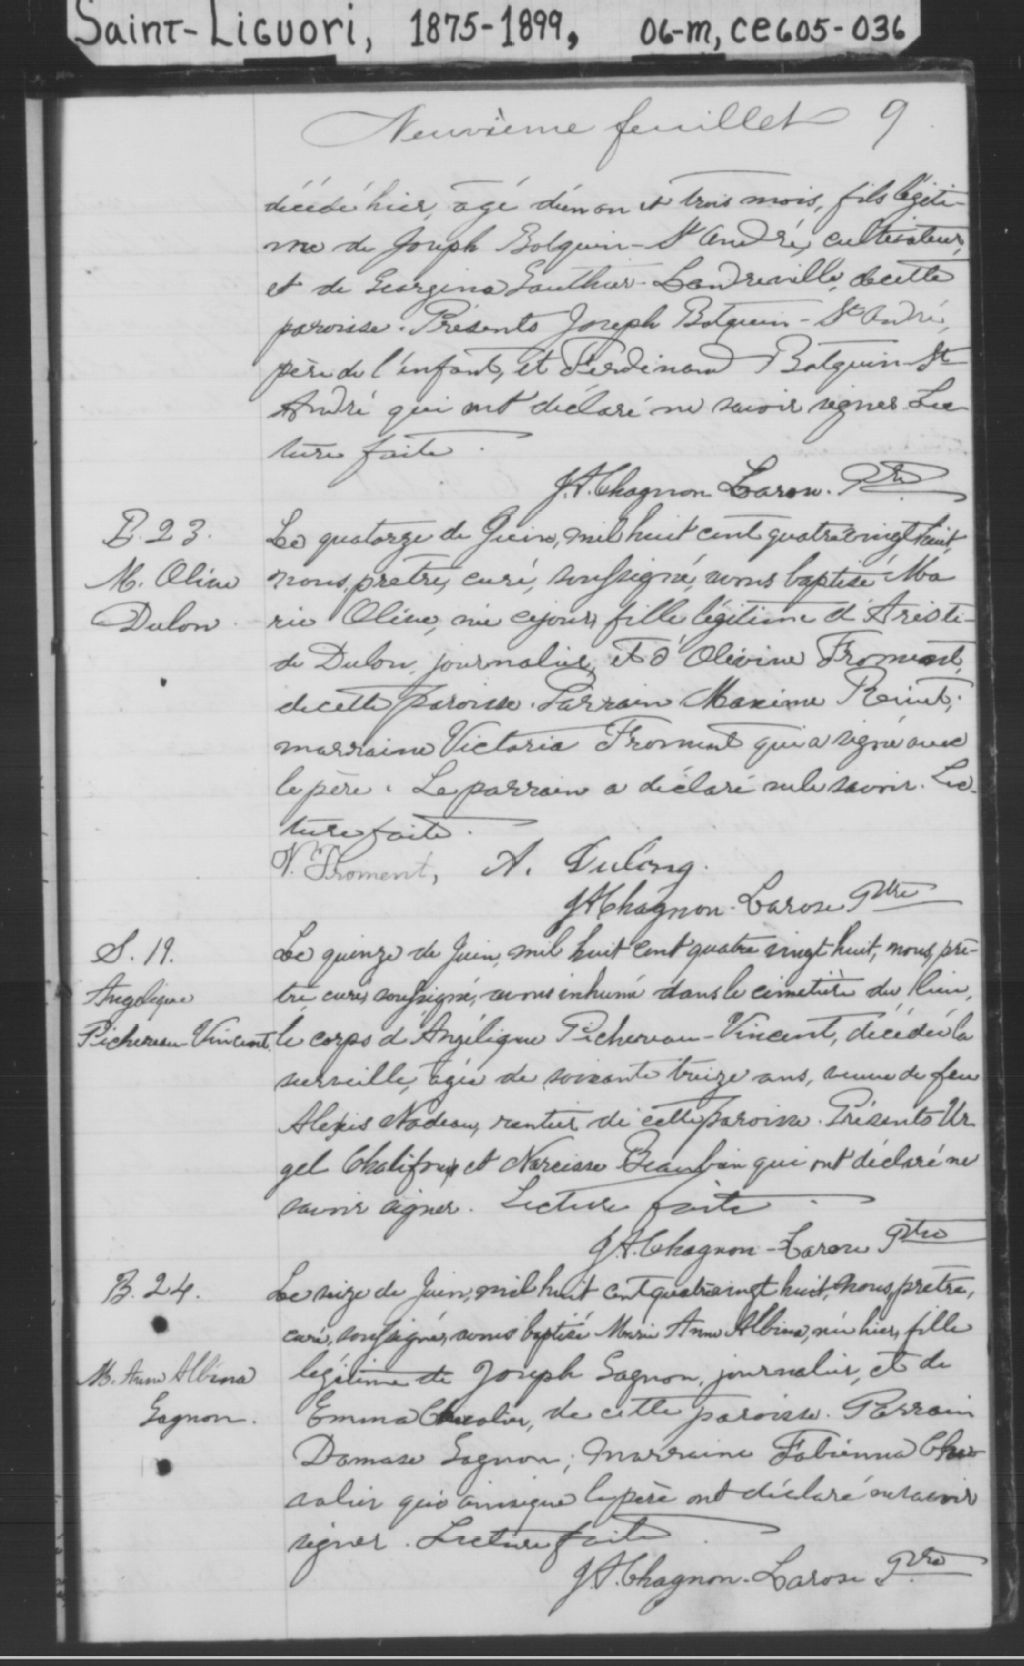 Saint-Liguori, 1875-1899, 06-M, CE605-036
Neuvième feuillet 9
décédé hier, âgé d'un an et trois mois, fils légiti-
me de Joseph Bolquin-St André, cultivateur,
et de Georgina Gauthier-Landreville, de cette
paroisse. Présents Joseph Botquin-St André,
père de l'enfant, et Ferdinand Botquin-St
André qui ont déclaré ne savoir signer. Lec
ture faite.
J.A. Chagnon Larose. Ptre
B. 23.
M. Oline
Dulon
Le quatorze de Juin, mil huit cent quatre vingt huit,
nous, prêtre, curé, soussigné, avons baptisé Ma
rie Oline, née ce jour, fille légitime d'Aristi-
de Dulon, journalier, et d'Olivine Froment,
de cette paroisse. Parrain Maxime
marraine Victoria Froment qui a signé avec
le père. Le parrain a déclaré ne le savoir. Lec-
ture faite.
V. Froment, A. Dulong.
J A Chagnon-Larose Ptre
S. 19.
Angelique
Pichereau-Vincent
Le quinze de Juin, mil huit cent quatre vingt huit, nous, prê-
tre curé soussigné, avons inhumé dans le cimetière du lieu,
le corps d'Angélique Pichereau-Vincent, décédée la
surveille, âgée de soixante treize ans, veuve de feu
Alexis Nadeau, rentier de cette paroisse. Présents Ur
gel Chalifoux et Narcisse Beaubien qui ont déclaré ne
savoir signer. Lecture faite.
J.A. Chagnon-Larose Ptre
B. 24.
M. Anne Albina
Gagnon.
Le seize de Juin, mil huit cent quatre vingt huit, nous, prêtre,
curé, soussigné, avons baptisé Marie Anne Albina, née hier, fille
légitime de Joseph Gagnon, journalier, et de
Emma Chevalier, de cette paroisse. Parrain
Damase Gagnon; marraine Fabienna Che-
valier qui ainsi que le père ont déclaré ne savoir
signer. Lecture faite.
J.A. Chagnon-Larose Ptre